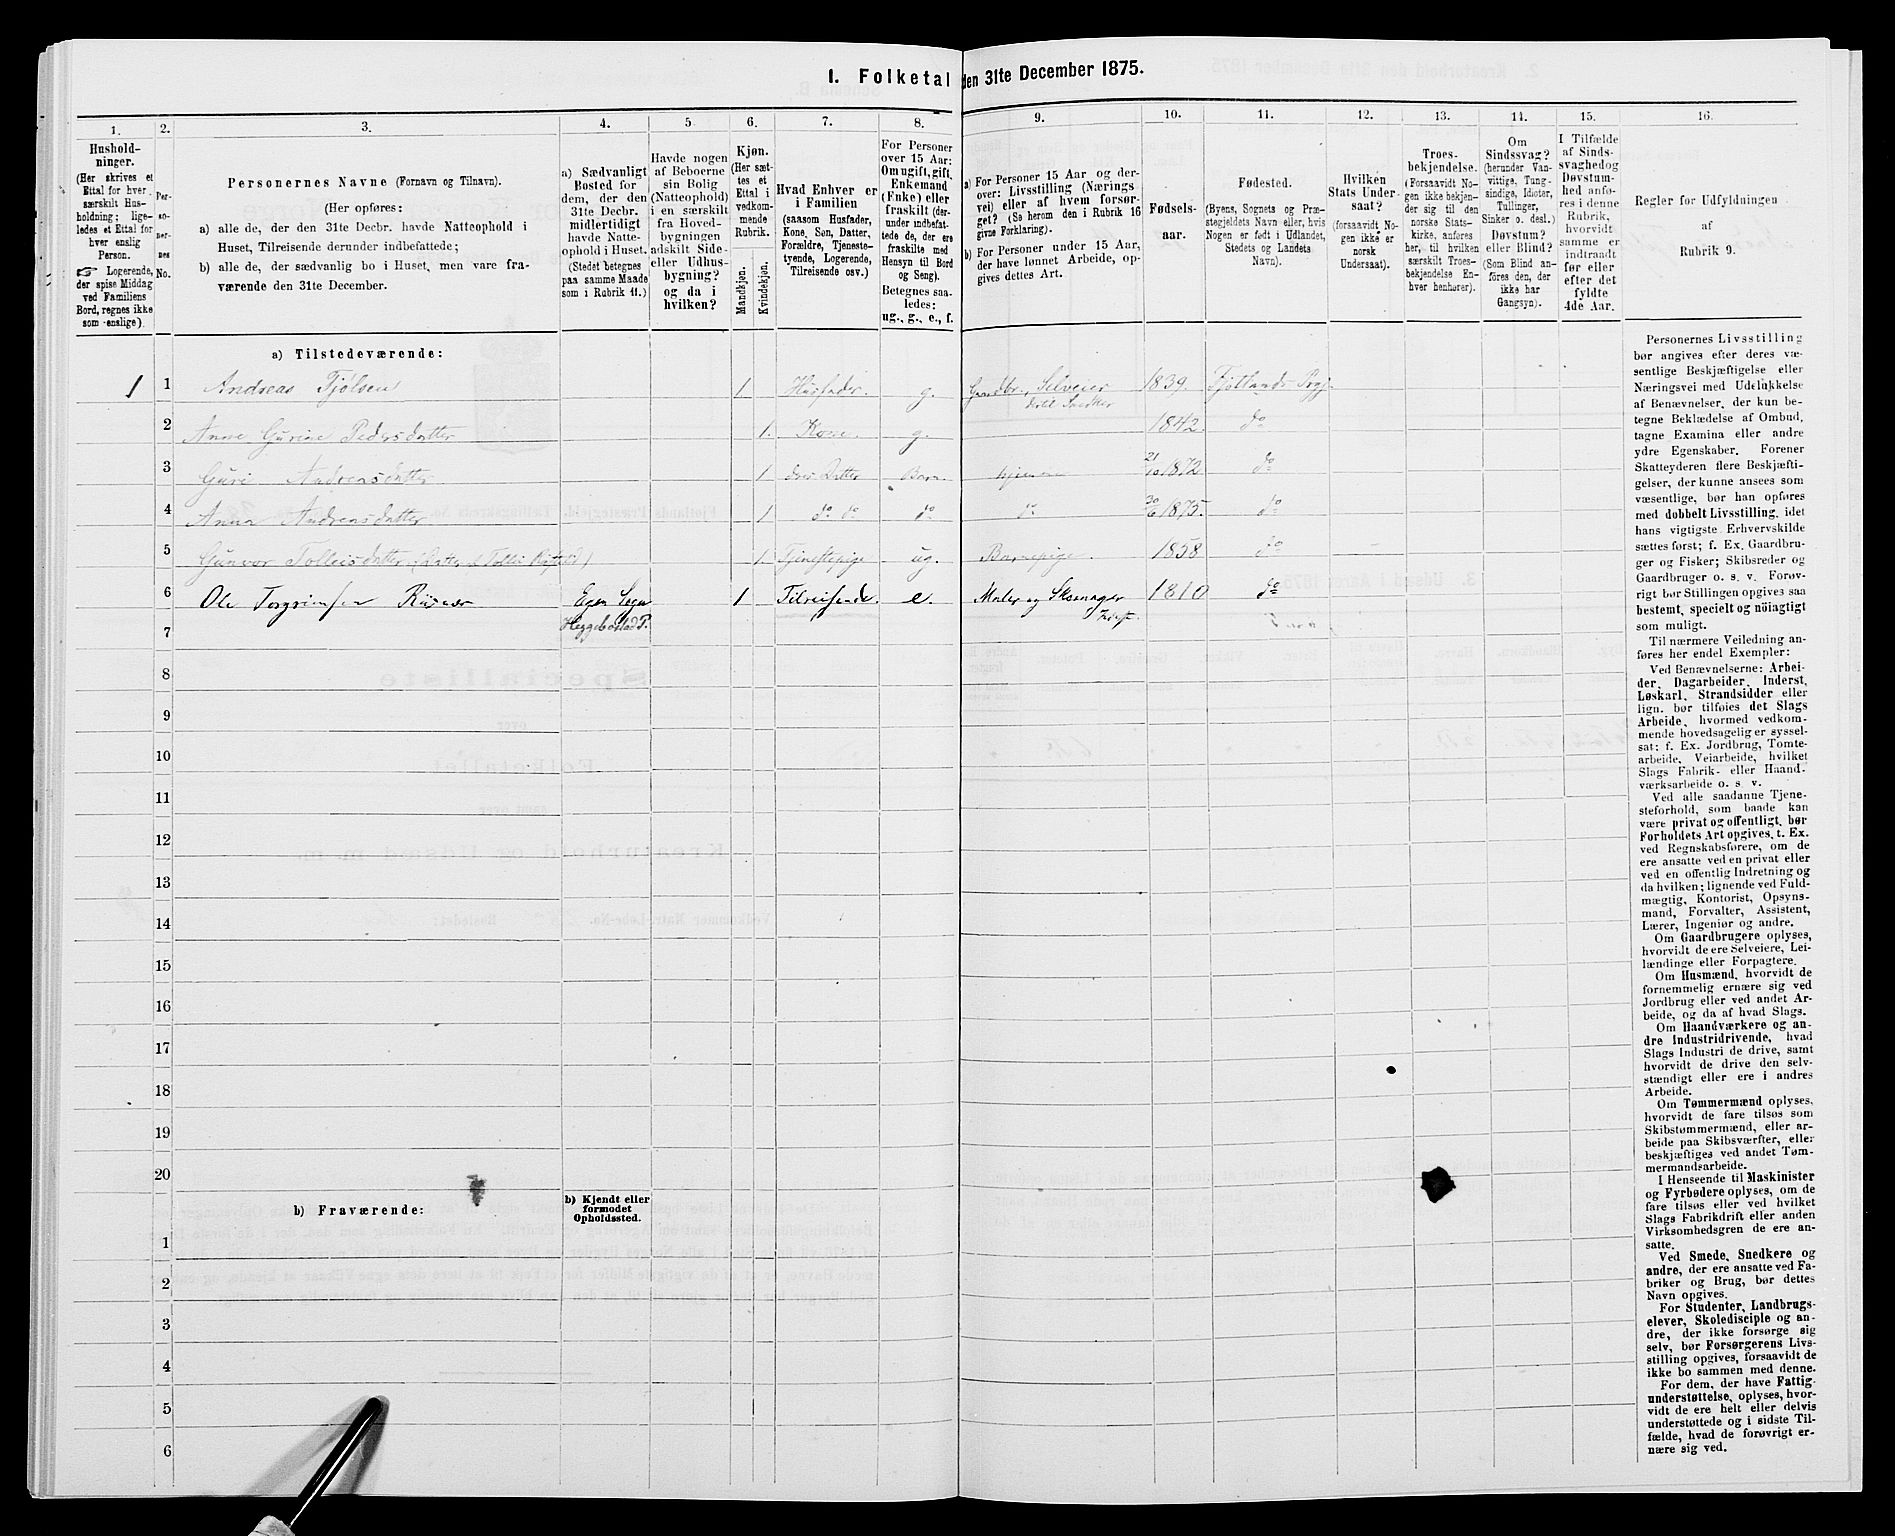 1. Folketal den 31te December 1875.
1. 2. 3. 4. 5 6. 7. 8. 9. 10. 11. 12. 13. 14. 15. 16.
Hushold-
ninger.
(Her skrives et
Ettal for hver
særskilt Hus-
holdning; lige-
ledes et Ettal for
hver enslig
Person.
☞ Logerende,
der spise Middag
ved Familiens
Bord, regnes ikke
som enslige).
Per-
so-
ner-
nes
No.
Personernes Navne (Fornavn og Tilnavn).
(Her opføres:
a) alle de, der den 31te Decbr. havde Natteophold i
Huset, Tilreisende derunder indbefattede;
b) alle de, der sædvanlig bo i Huset, men vare fra-
værende den 31te December.
a) Sædvanligt
Bosted for
dem, der den
31te Decbr.
midlertidigt
havde Natte-
ophold i Huset.
(Stedet betegnes
paa samme Maade
som i Rubrik 11.)
Havde nogen
af Beboerne
sin Bolig
(Natteophold)
i en særskilt
fra Hoved-
bygningen
adskilt Side-
eller Udhus-
bygning?
og da i
hvilken?
Kjøn.
(Her sæt-
tes et
Ettal i
vedkom-
mende
Rubrik.
Mandkjøn.
Kvindekjøn.
Hvad Enhver er
i Familien
(saasom Husfader,
Kone, Søn, Datter,
Forældre, Tjeneste-
tyende, Logerende,
Tilreisende osv.)
For Personer
over 15 Aar:
Om ugift, gift,
Enkemand
(Enke) eller
fraskilt (der-
under indbefat-
tede de, der ere
fraskilte med
Hensyn til Bord
og Seng).
Betegnes saa-
ledes:
ug., g., e., f.
a) For Personer 15 Aar og der-
over: Livsstilling (Nærings
vei) eller af hvem forsør-
get? (Se herom den i Rubrik 16
givne Forklaring).
b) For Personer under 15 Aar,
der have lønnet Arbeide, op-
gives dettes Art.
Fødsels-
aar.
Fødested.
(Byens, Sognets og Præ-
stegjeldets Navn eller, hvis
Nogen er født i Udlandet,
Stedets og Landets
Navn).
Hvilken
Stats Under-
saat?
(forsaavidt No-
gen ikke er
norsk
Undersaat).
Troes-
bekjendelse.
(Forsaavidt No-
gen ikke bekjen-
der sig til den
norske Stats-
kirke, anføres
her, til hvilken
særskilt Troes-
bekjendelse En-
hver henhører).
Om
Sindssvag?
(herunder Van-
vittige, Tung-
sindige, Idioter,
Tullinger,
Sinker o. desl.)
Døvstum?
eller Blind?
(Som Blind an-
føres den, der
ikke har
Gangsyn).
I Tilfælde
af Sinds-
svaghed og
Døvstum-
hed anfø-
res i denne
Rubrik,
hvorvidt
samme er
indtraadt
før eller
efter det
fyldte
4de Aar.
Regler for Udfyldningen
af
Rubrik 9.
a) Tilstedeværende:
1 1 Andreas Fjølsen 1 Husfader. g. Gaardbr., Selveier 1839. Fjotlands Prgj.
dertil Snedker
2 Anne Gurine Pedersdatter 1. Kone. g. 1842. do
3 Guri Andreasdatter 1 deres Datter Barn hjemme 21/10 1872 do
4 Anna Andreasdatter 1 do do do do 30/6 1875. do
5 Gunvor Tolleisdatter (Datter af Tollei 1. Tjenestepige ug. Barnepige. 1858 do
6 Ole Torgrimsen Egen Sogn 1 Tilreisende. e. Maler og 1810 do
7 Heggebostad P.
8
9
10
11
12
13
14
15
16
17
18
19
20
b) Fraværende:
b) Kjendt eller
formodet
Opholdssted.
1
2
3
4
5
6
Personernes Livsstilling
bør angives efter deres væ-
sentlige Beskjæftigelse eller
Næringsvei med Udelukkelse
af Benævnelser, der kun be-
tegne Beklædelse af Ombud,
tagne Examina eller andre
ydre Egenskaber. Forener
Skatteyderen flere Beskjæfti-
gelser, der kunne ansees som
væsentlige, bør han opføres
med dobbelt Livsstilling, idet
hans vigtigste Erhvervskilde
sættes først; f. Ex. Gaardbru-
ger og Fisker; Skibsreder og
Gaardbruger o. s. v. Forøv-
rigt bør Stillingen opgives saa
bestemt, specielt og nøiagtigt
som muligt.
Til nærmere Veiledning an-
føres her endel Exempler:
Ved Benævnelserne: Arbei-
der, Dagarbeider, Inderst,
Løskarl, Strandsidder eller
lign. bør tilføies det Slags
Arbeide, hvormed vedkom-
mende hovedsagelig er syssel-
sat; f. Ex. Jordbrug, Tomte-
arbeide, Veiarbeide, hvilket
Slags Fabrik- eller Haand-
værksarbeide o. s. v.
Ved alle saadanne Tjene-
steforhold, som baade kan
være privat og offentligt, bør
Forholdets Art opgives, t. Ex.
ved Regnskabsførere, om de
ere ansatte ved en privat eller
ved en offentlig Indretning og
da hvilken; lignende ved Fuld-
mægtig, Kontorist, Opsyns-
mand, Forvalter, Assistent,
Lærer, Ingeniør og andre.
Om Gaardbrugere oplyses,
hvorvidt de ere Selveiere, Lei-
lændinge eller Forpagtere.
Om Husmænd, hvorvidt de
fornemmelig ernære sig ved
Jordbrug eller ved andet Ar-
beide, og da af hvad Slags.
Om Haandværkere og an-
dre Industridrivende, hvad
Slags Industri de drive, samt
hvorvidt de drive den selv-
stændigt eller ere i andres
Arbeide.
Om Tømmermænd oplyses,
hvorvidt de fare tilsøs som
Skibstømmermænd, eller ar-
beide paa Skibsværfter, eller
beskjæftiges ved andet Tøm-
mermandsarbeide.
I Henseende til Maskinister
og Fyrbødere oplyses, om de
fare tilsøs eller ved hvilket
Slags Fabrikdrift eller anden
Virksomhedsgren de ere an-
satte.
Ved Smede, Snedkere og
andre, der ere ansatte ved Fa-
briker og Brug, bør dettes
Navn opgives.
For Studenter, Landbrugs-
elever, Skoledisciple og an-
dre, der ikke forsørge sig
selv, bør Forsørgerens Livs-
stilling opgives, forsaavidt de
ikke bo sammen med denne.
For dem, der have Fattig-
understøttelse, oplyses, hvor-
vidt de ere helt eller delvis
understøttede og i sidste Til-
fælde, hvad de forøvrigt er-
nære sig ved.